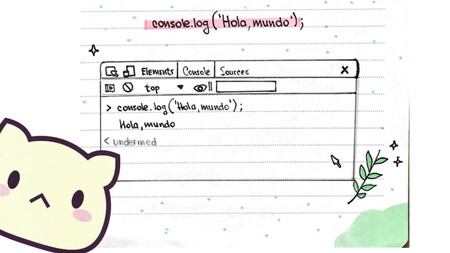 console.log('Hola,mundo');
Elements Console Sources
top
> console.log('Hola,mundo');
Hola,mundo
< undefined